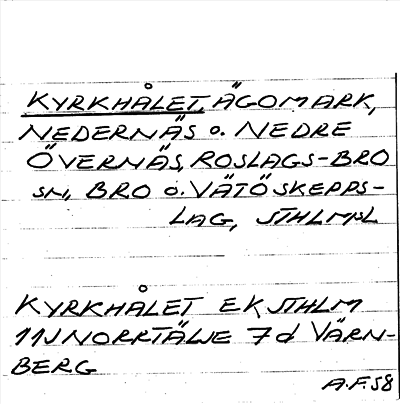 KYRKHÅLET, ÄGOMARK,
NEDERNÄS o. NEDRE
ÖVERNÄS, ROSLAGS-BRO
sn, BRO o. VÄTÖ SKEPPS-
LAG, STHLMSL
KYRKHÅLET EK STHLM
11J NORRTÄLJE 7d VÄRN-
BERG
A.F. 58